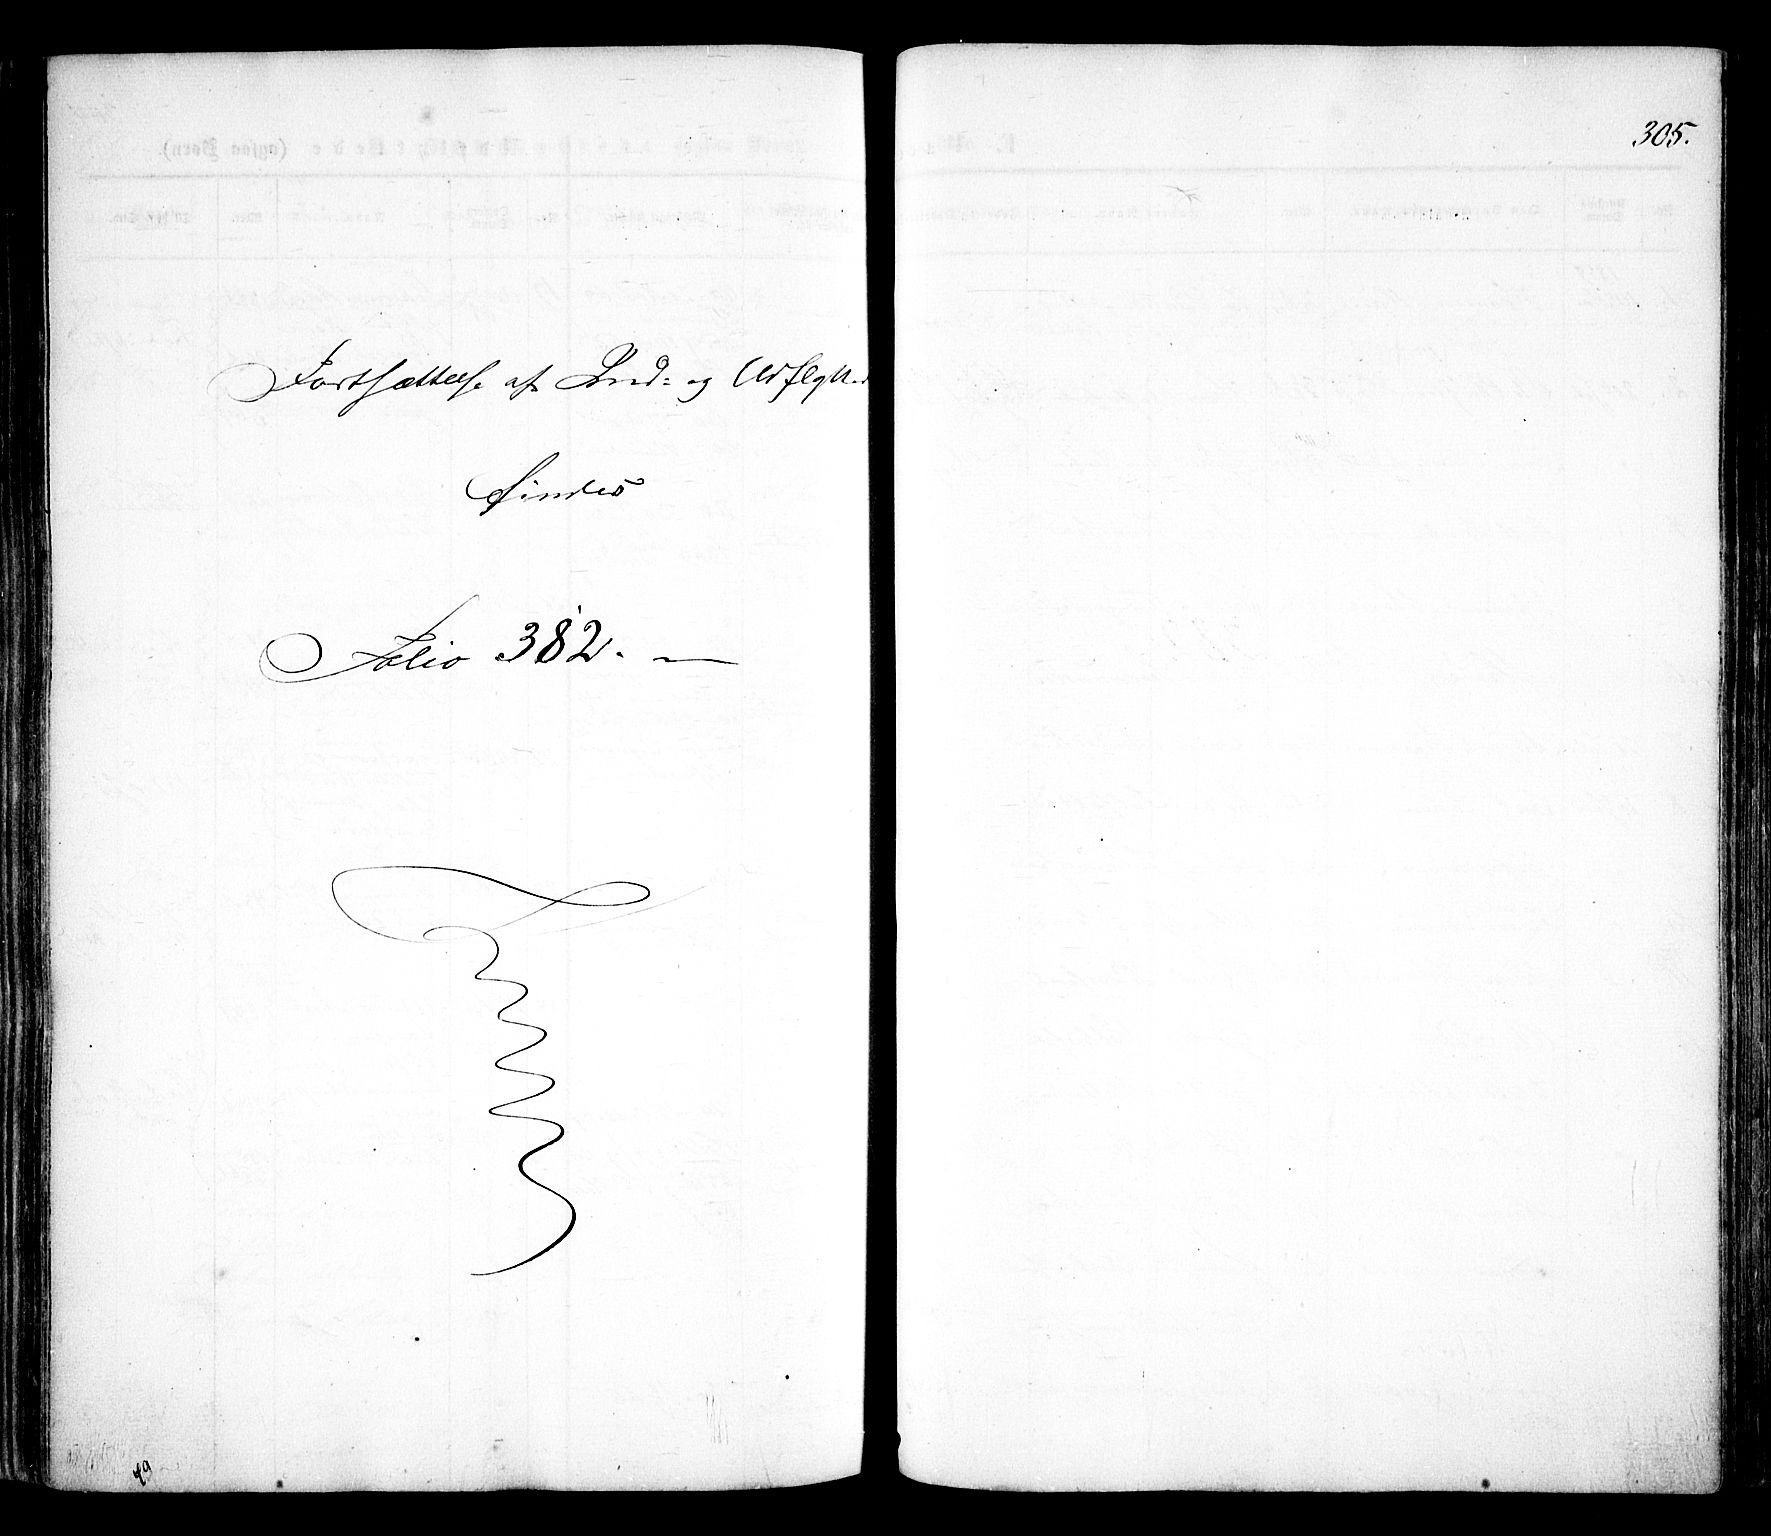 Fortsættelse af Ind- og Udflyttede
findes
Folio 382. —
305.